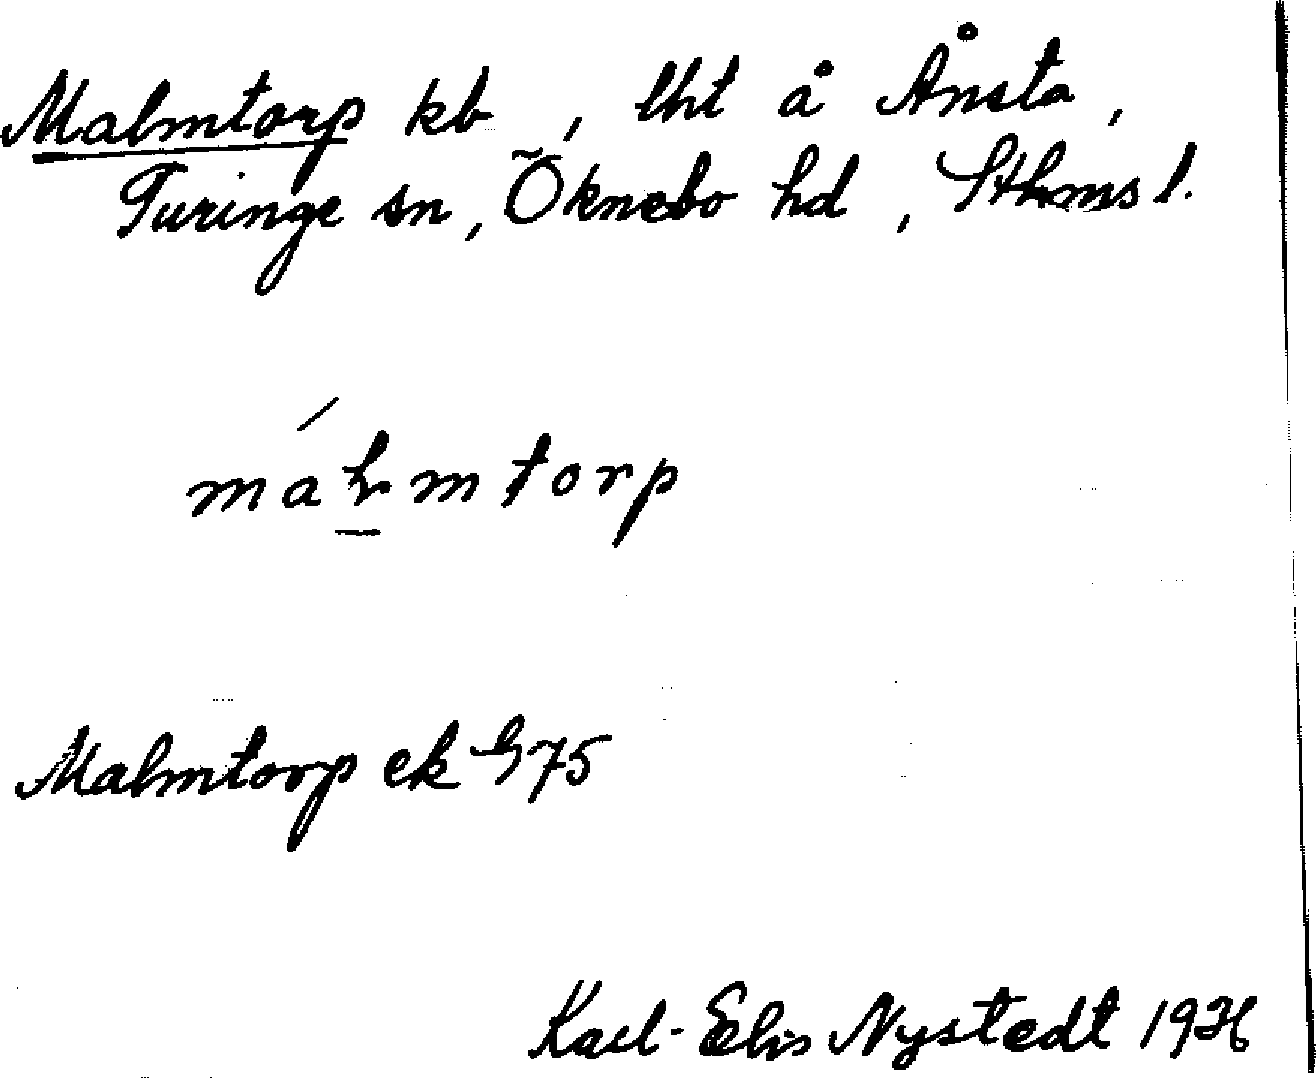 Malmtorp kb, lht å Ånsta,
Turinge sn, Öknebo hd, Sthms l.
Malmtorp ek G75
Karl-Elis Nystedt 1936